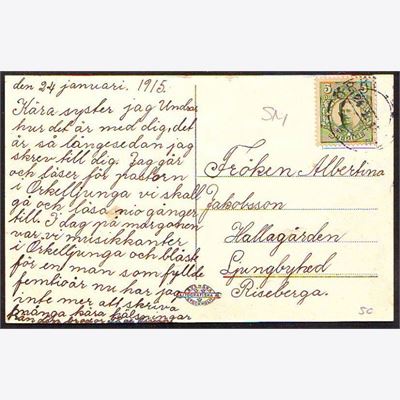 den 24 januari. 1915.
Kära syster jag Undrar
hur det är med dig, det
är så längesedan jag
skrev till dig. Jag går
och läser för pastorn
i Örkelljunga vi skall
gå och läsa nio gånger
till. I dag på morgonen
var vi musikkanter
i Örkelljunga och blåste
för en man som fyllde
femtio år nu har jag
inte mer att skriva
många kära hälsningar
från din broder
5
SM
Fröken Albertina
Jakobsson
Hallagården
Ljungbyhed
Riseberga.
SC